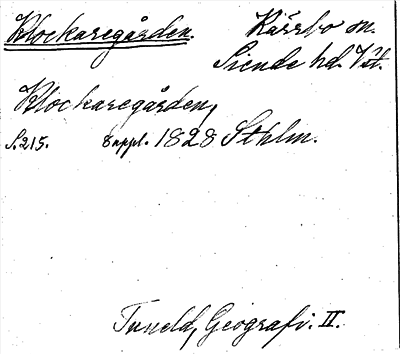 Klockaregården. Kärrbo sn.
Siende hd. Vstm.
Klockaregården,
S. 215. 8 uppl. 1828 Sthlm.
Tuneld, Geografi. II.